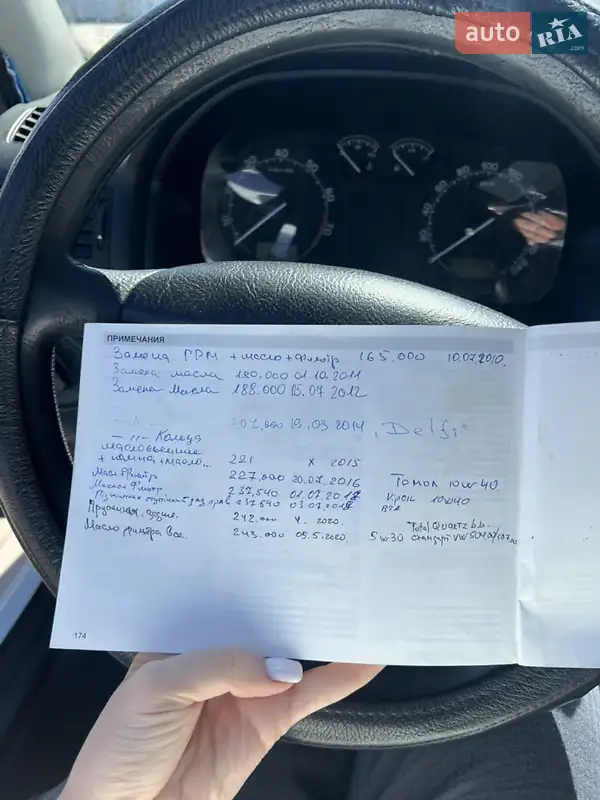 auto RIA .com
ПРИМЕЧАНИЯ
Замена ГРМ + масло + фильтр 165.000 10.07.2010.
Замена масла 180.000 01.10.2011
Замена масла 188.000 05.07 2012
19.03 2014 "Delfi"
— " — Кольца
маслосъемные
+ помпа + масло... 221 х 2015
Масл Фильтр 227,000 20.07.2016 Тамол 10W40
Маслои Фільтр 237,540 01.07.2018 10W40
237 540 03.07.2018
242.000 4. 2020. Total Quartz
Масло фильтра Все. 243.000 05.5.2020. 5w30 стандарт VW
174